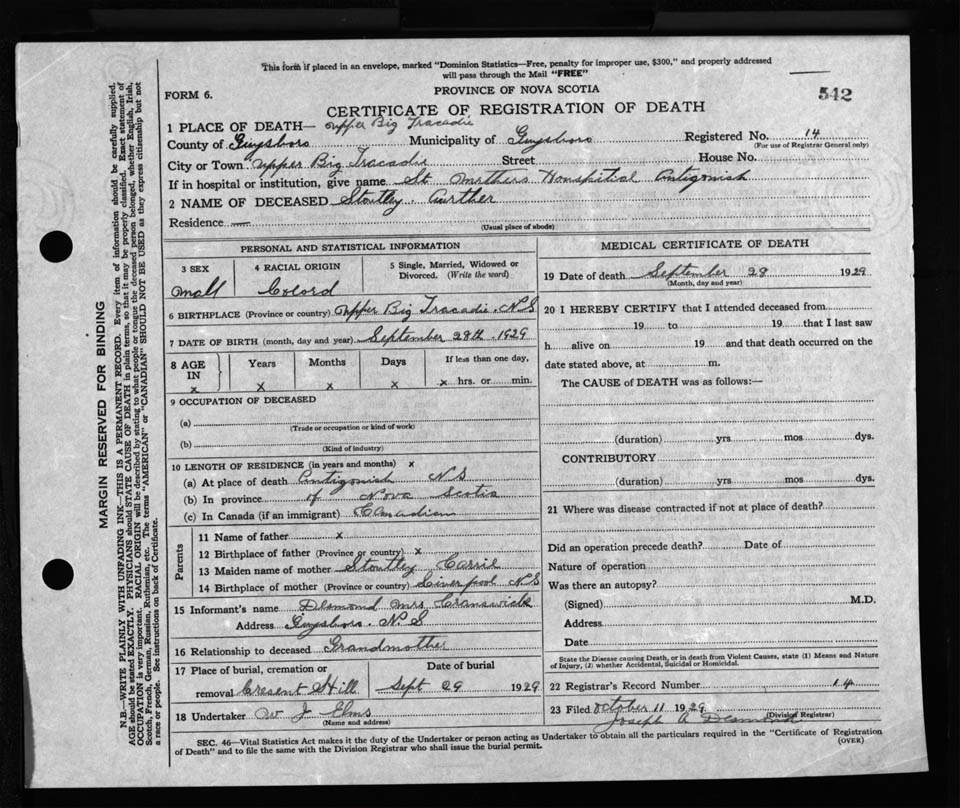 This form if placed in an envelope, marked "Dominion Statistics—Free, penalty for improper use, $300," and properly addressed
will pass through the Mail "FREE"
FORM 6.
PROVINCE OF NOVA SCOTIA
542
CERTIFICATE OF REGISTRATION OF DEATH
1 PLACE OF DEATH— Upper Big Tracadie
County of Guysboro Municipality of Guysboro Registered No. 14
(For use of Registrar General only)
City or Town Upper Big Tracadie Street House No.
If in hospital or institution, give name St Marthers Antigonish
2 NAME OF DECEASED Stoutley. Aurther
Residence —
(Usual place of abode)
PERSONAL AND STATISTICAL INFORMATION
3 SEX
Mall
4 RACIAL ORIGIN
Colord
5 Single, Married, Widowed or
Divorced. (Write the word)
6 BIRTHPLACE (Province or country) Upper Big Tracadie. N S
7 DATE OF BIRTH (month, day and year) September 28th. 1929
8 AGE IN x
Years x
Months x
Days x
If less than one day,
x hrs. or min.
9 OCCUPATION OF DECEASED
(a)
(Trade or occupation or kind of work)
(b)
(Kind of industry)
10 LENGTH OF RESIDENCE (in years and months) x
(a) At place of death Antigonish N S
(b) In province of Nova Scotia
(c) In Canada (if an immigrant) Canadian
Parents
11 Name of father x
12 Birthplace of father (Province or country) x
13 Maiden name of mother Stoutley Carrie
14 Birthplace of mother (Province or country) Liverpool N S
15 Informant's name Desmond Mrs
Address Guysboro. N. S
16 Relationship to deceased Grandmother
17 Place of burial, cremation or
removal Cresent Hill
Date of burial
Sept 29 1929
18 Undertaker W J Elms
(Name and address)
MEDICAL CERTIFICATE OF DEATH
19 Date of death September 28 1929
(Month, day and year)
20 I HEREBY CERTIFY that I attended deceased from
19 to 19 that I last saw
h alive on 19 and that death occurred on the
date stated above, at m.
The CAUSE of DEATH was as follows:—
(duration) yrs mos dys.
CONTRIBUTORY
(duration) yrs. mos dys.
21 Where was disease contracted if not at place of death?
Did an operation precede death? Date of
Nature of operation
Was there an autopsy?
(Signed) M.D.
Address
Date
State the Disease causing Death, or in death from Violent Causes, state (1) Means and Nature
of Injury, (2) whether Accidental, Suicidal or Homicidal.
22 Registrar's Record Number 14
23 Filed October 11 1929
Joseph A Desmond
(Division Registrar)
SEC. 46—Vital Statistics Act makes it the duty of the Undertaker or person acting as Undertaker to obtain all the particulars required in the "Certificate of Registration
of Death" and to file the same with the Division Registrar who shall issue the burial permit.
(OVER)
MARGIN RESERVED FOR BINDING
N.B.—WRITE PLAINLY WITH UNFADING INK—THIS IS A PERMANENT RECORD. Every item of information should be carefully supplied.
AGE should be stated EXACTLY. PHYSICIANS should STATE CAUSE OF DEATH in plain terms, so that it may be properly classified. Exact statement of
OCCUPATION is very important. RACIAL ORIGIN will be described by stating to what people or tongue the deceased person belonged, whether English, Irish,
Scotch, French, German, Russian, Ruthenian, etc. The terms "AMERICAN" or "CANADIAN" SHOULD NOT BE USED as they express citizenship but not
a race or people. See instructions on back of Certificate.